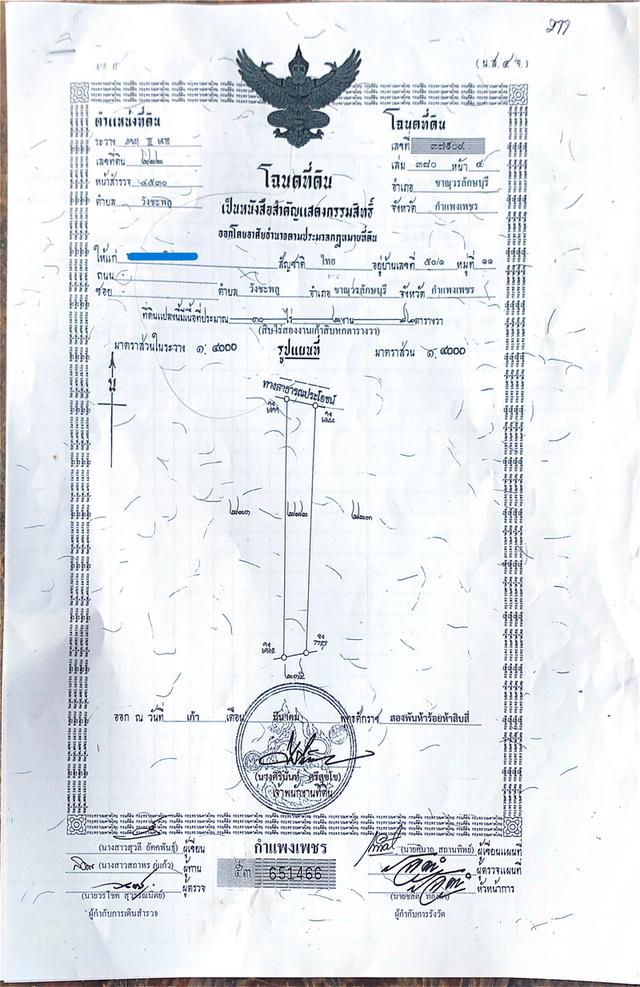 (น.ส. ๔ จ.)
ตำแหน่งที่ดิน
ระวาง
เลขที่ดิน ๒๒๒
หน้าสำรวจ ๔๕๓๐
ตำบล วังชะพลู
โฉนดที่ดิน
เลขที่ ๓๗๕๐๙
เล่ม ๓๘๐ หน้า ๙
อำเภอ ขาณุวรลักษบุรี
จังหวัด กำแพงเพชร
โฉนดที่ดิน
เป็นหนังสือสำคัญแสดงกรรมสิทธิ์
ออกโดยอาศัยอำนาจตามประมวลกฎหมายที่ดิน
ให้แก่ สัญชาติ ไทย อยู่บ้านเลขที่ ๕๐/๑ หมู่ที่ ๑๑
ถนน
ซอย ตำบล วังชะพลู อำเภอ ขาณุวรลักษบุรี จังหวัด กำแพงเพชร
ที่ดินแปลงนี้มีเนื้อที่ประมาณ ๑๐ ไร่ ๒ งาน ๙๖ ตารางวา
(สิบไร่สองงานเก้าสิบหกตารางวา)
มาตราส่วนในระวาง ๑: ๔๐๐๐ รูปแผนที่ มาตราส่วน ๑: ๔๐๐๐
น
ทางสาธารณประโยชน์
ออก ณ วันที่ เก้า เดือน มีนาคม พุทธศักราช สองพันห้าร้อยห้าสิบสี่
เจ้าพนักงานที่ดิน
(นางสาวสุวลี อัคคพันธุ์) ผู้เขียน
(นางสาวสถาพร ภู่แก้ว) ผู้ทาน
ผู้ตรวจ
ผู้กำกับการเดินสำรวจ
กำแพงเพชร
๕๓ 651466
สถานทิพย์) ผู้เขียนแผนที่
ผู้ตรวจแผนที่
หัวหน้าการ
ผู้กำกับการรังวัด